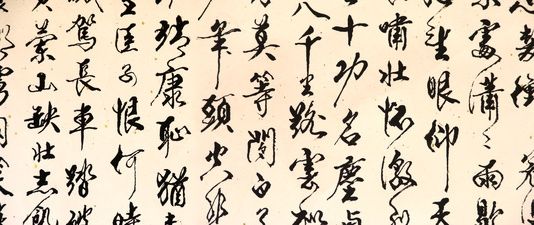 髮衝冠
處瀟々雨歇
望眼仰天
嘯壯懷激烈
十功名塵與
八千里路雲和
莫等閒白了
年頭空悲
靖康恥猶未
臣子恨何時
駕長車踏破
蘭山缺壯志飢